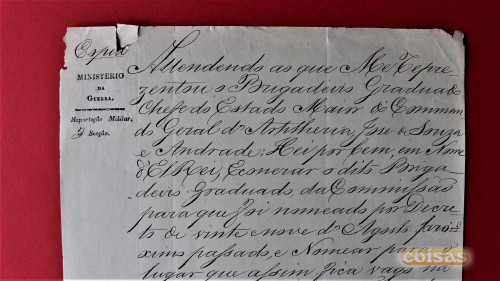 Copia
MINISTERIO
DA
GUERRA.
Repartição Militar.
Secção.
Attendendo ao que Me Repre-
zentou o Brigadeiro Graduado
Chefe do Estado Maior do Comman-
do Geral d'Artilheria, José de Souza
e Andrade; Hei por bem, em Nome
d'ElRei, Exonerar o dito Briga-
deiro Graduado, da Commissão
para que foi nomeado por Decre-
to de vinte e nove d'Agosto proxi-
ximo passado, e Nomear para o
lugar que assim fica vago na
coisas